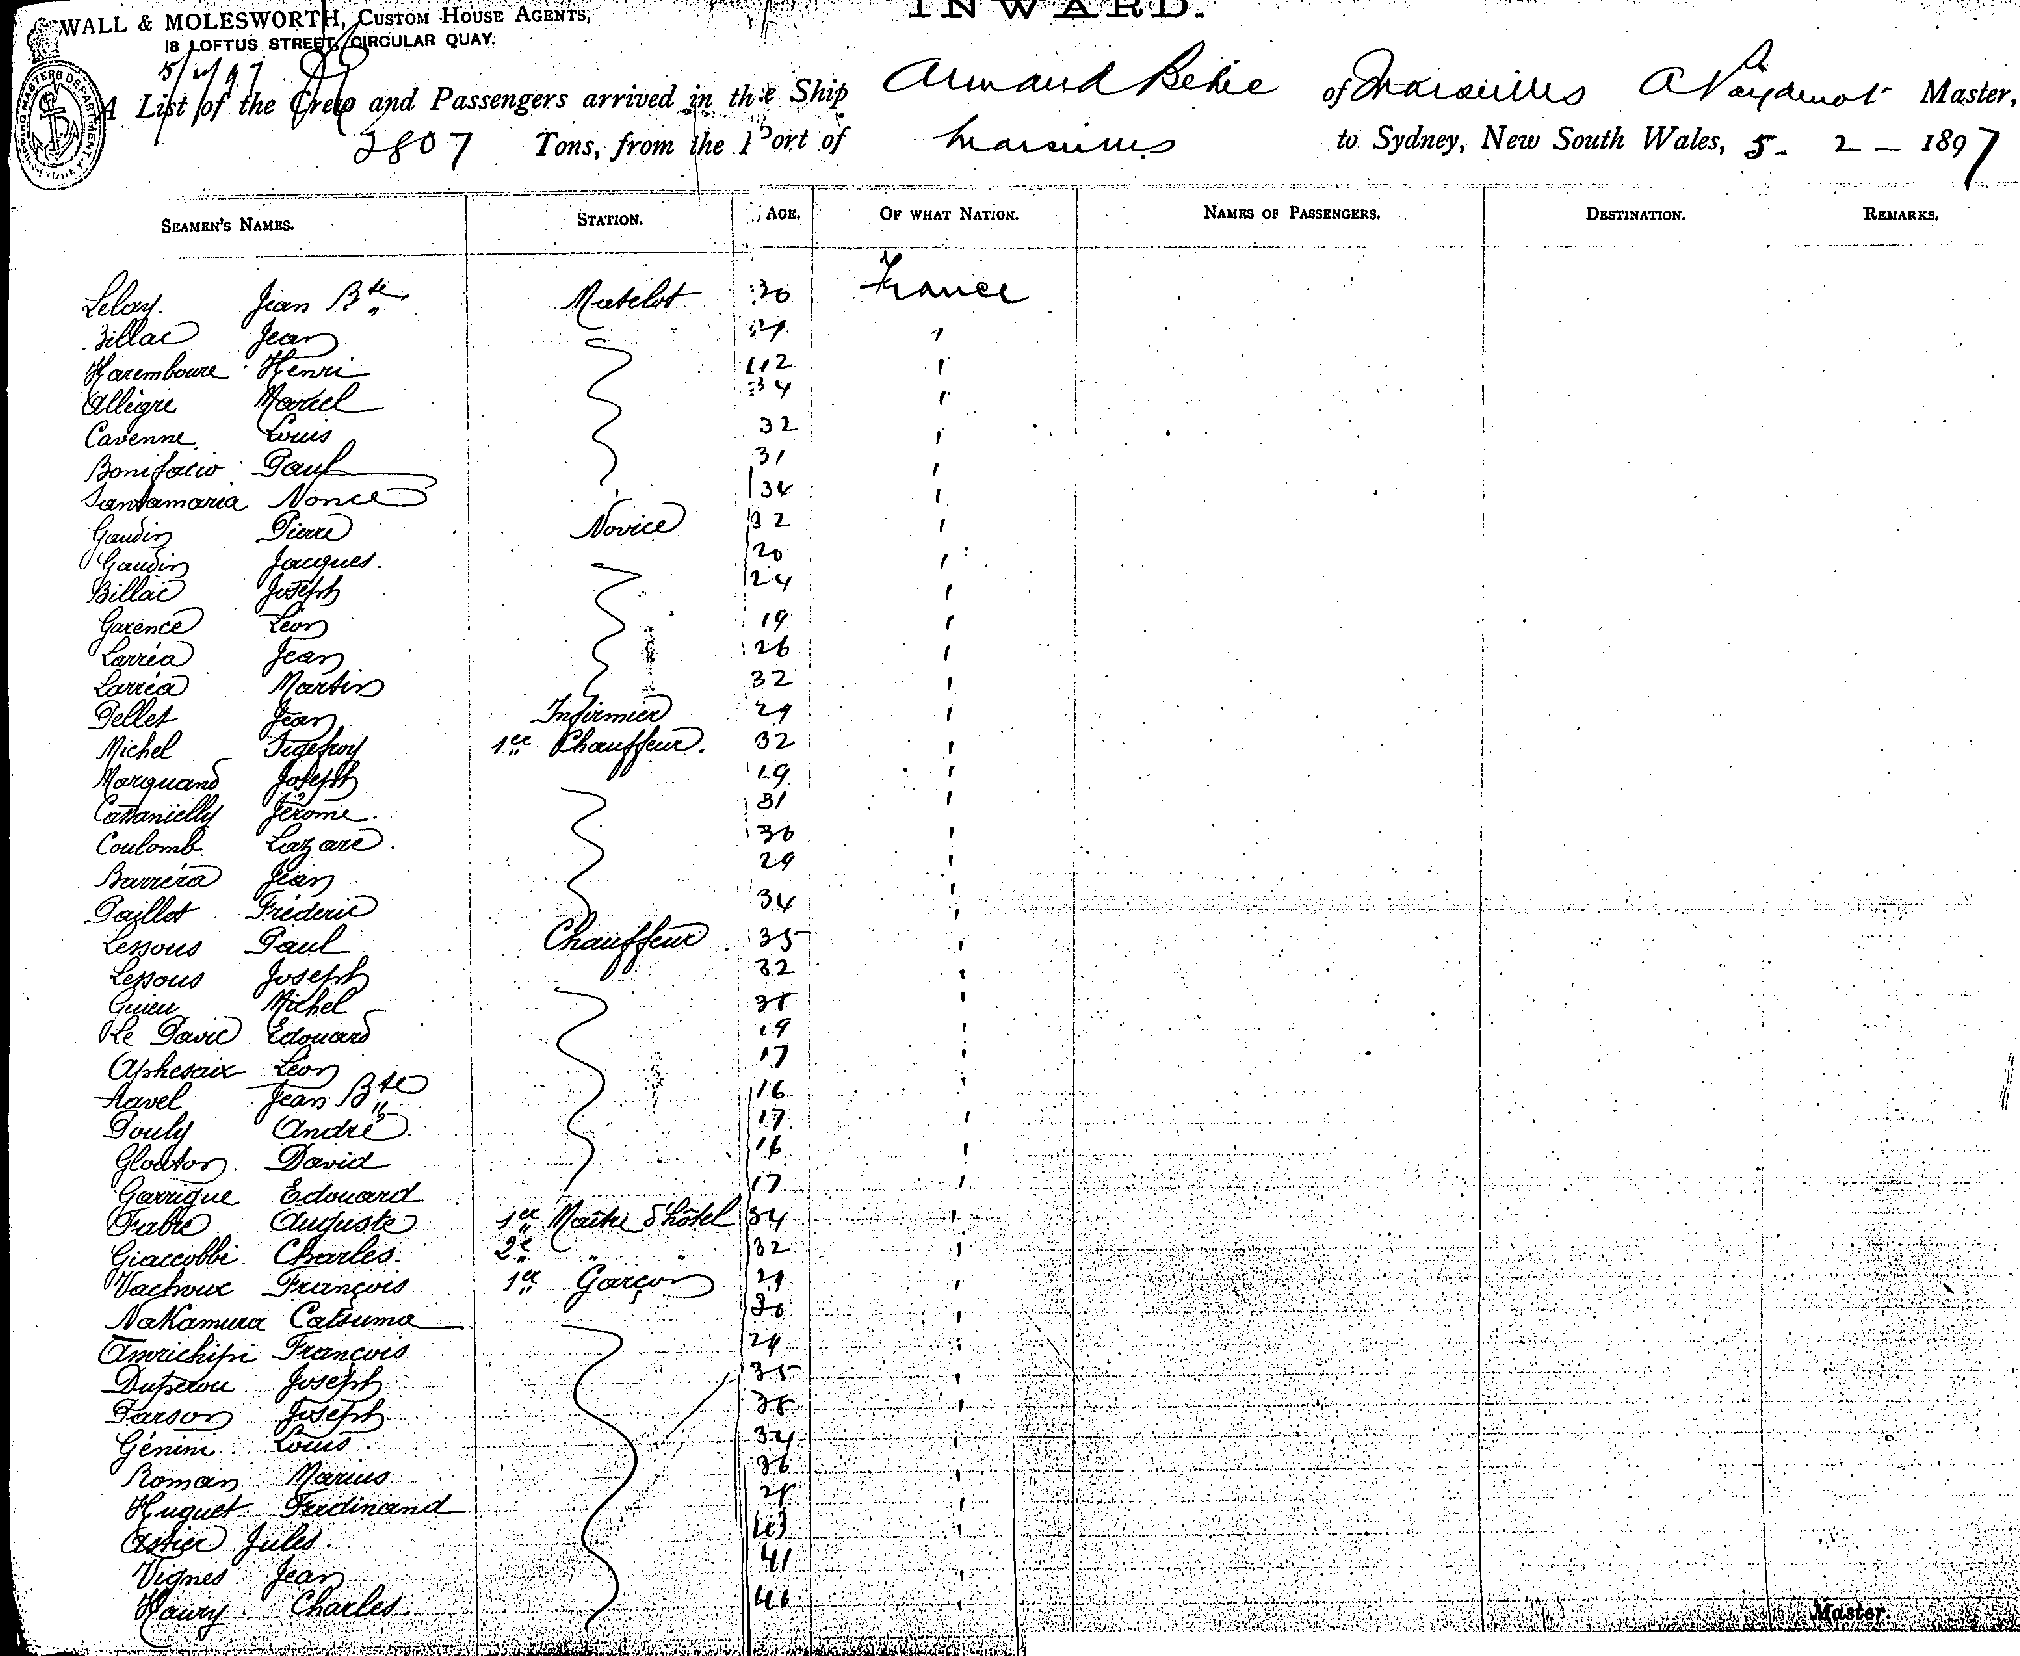 INWARD.
WALL & MOLESWORTH, CUSTOM HOUSE AGENTS,
18 LOFTUS STREET, CIRCULAR QUAY.
5/2/97
A List of the Crew and Passengers arrived in the Ship Armand Behic of Marseilles Master,
2807 Tons, from the Port of Marseilles to Sydney, New South Wales, 5. 2 - 1897
SEAMEN'S NAMES. STATION. AGE. OF WHAT NATION. NAMES OF PASSENGERS. DESTINATION. REMARKS.
Lelay. Jean Bte Matelot 30 France
Billac Jean "
Haremboure Henri 42 "
Allègre 34 "
Cavenne Louis 32 "
Bonifacio Paul 31 "
Santamaria Nonce 34 "
Gaudin Pierre Novice 32 "
Gaudin Jacques. 20 "
Billac Joseph 24 "
Garence Léon 19 "
Larréa Jean 26 "
Larréa Martin 32 "
Pellet Jean Infirmier 29 "
Michel 1er Chauffeur. 32 "
Marquand Joseph 29 "
Jérome. 31 "
Coulomb Lazare. 30 "
Barréra Jean 29 "
Paillot Fréderic 34 "
Lessous Paul Chauffeur 35 "
Lessous Joseph 32 "
Guieu Michel 38 "
Le Davic Edouard 19 "
Léon 17 "
Jean Bte 16 "
Pouly André. 17 "
David 16 "
Garrigue Edouard 17 "
Fabre Auguste 1er Maître d'hôtel 34 "
Giaccobbi Charles. 2e " " 32 "
Vachoux François 1er Garçon 29 "
Nakamura Catsuma 30 "
François 29 "
Duperou Joseph 35 "
Parson Joseph 38 "
Génini Louis 34 "
Roman Marius 36 "
Huguet Ferdinand 28 "
Astier Jules. "
Vignes Jean 41 "
Haury Charles 46 "
Master.